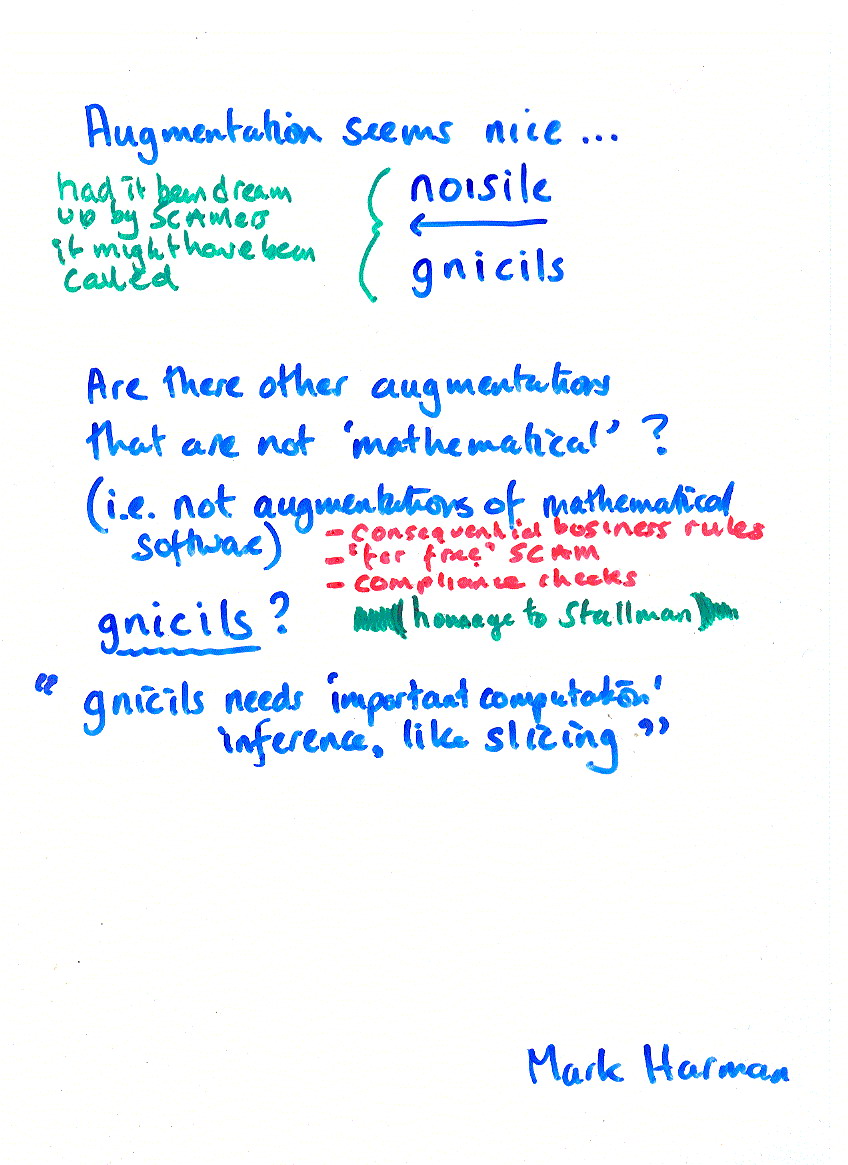 Augmentation seems nice ...
had it been dream
up by SCAMers
it might have been
called
noisile
gnicils
Are there other augmentations
that are not 'mathematical' ?
(i.e. not augmentations of mathematical
software)
- consequential business rules
- 'for free' SCAM
- compliance checks
gnicils ?
(homage to Stallman)
" gnicils needs 'important computation'
inference, like slicing "
Mark Harman